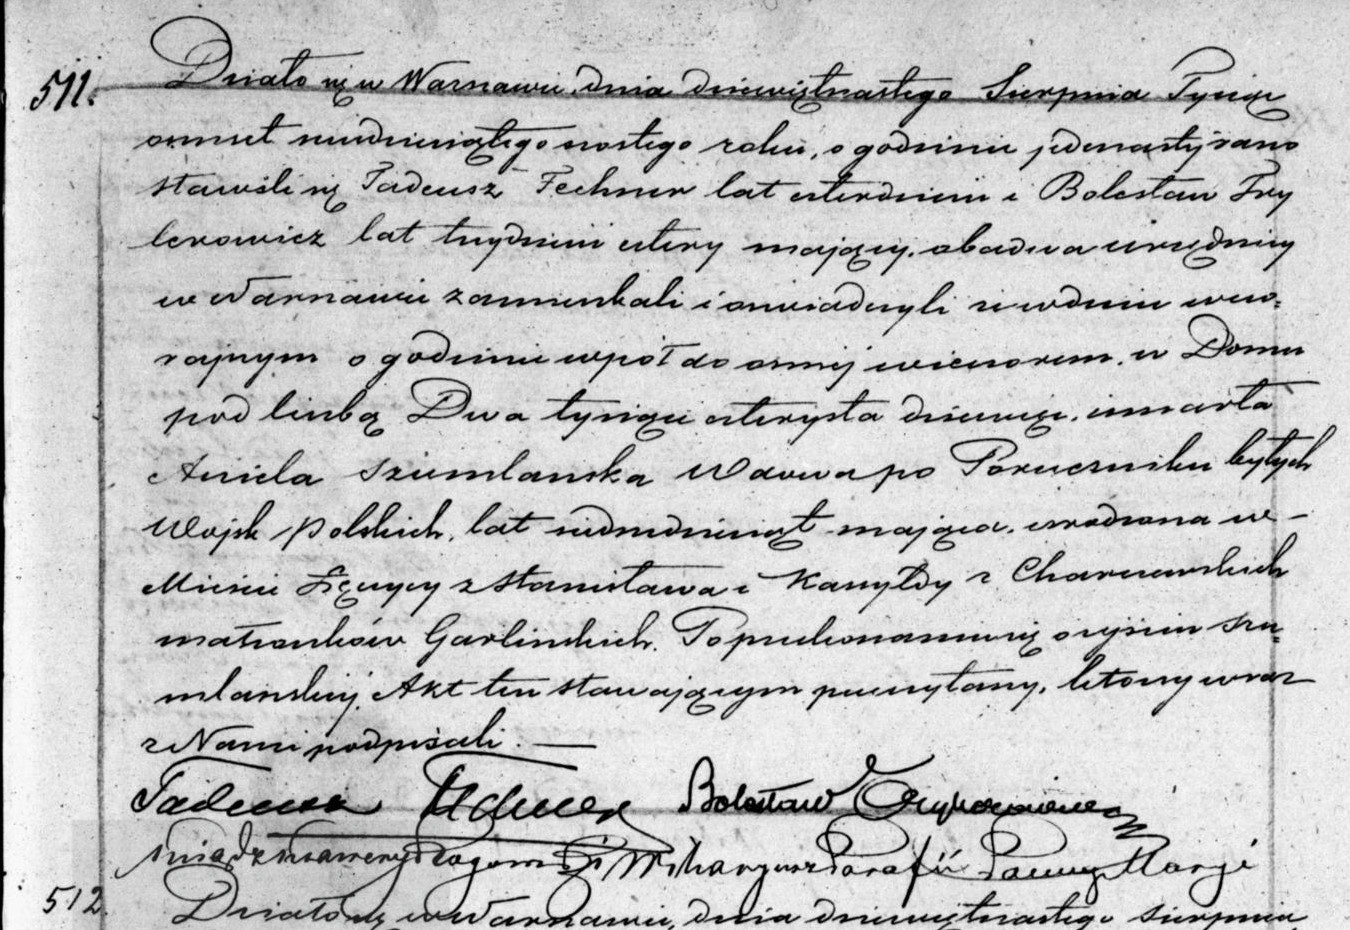 511. Działo się w Warszawie, dnia dziewiętnastego Sierpnia Tysiąc
osmset sześćdziesiątego szóstego roku, o godzinie jedenastéj rano
stawili się Tadeusz Fechner lat czterdzieści i Bolesław Try
lerowicz lat trzydzieści cztery mający, obadwa urzędnicy
w Warszawie zamieszkali i oświadczyli że w dniu wczo=
rajszym o godzinie wpół do osmej wieczorem, w Domu
pod liczbą Dwa tysiące czterysta dziewięć, umarła
Aniela Szumlanska Wdowa po Poruczniku byłych
Wojsk Polskich, lat siedmdziesiąt mająca, urodzona w –
Mieście Łęczycy z Stanisława i Kasyldy z Charczewskich
małżonków Garlinskich. Po przekonaniu się o zejściu Szu=
mlanskiej, Akt ten stawającym przeczytany, którzy wraz
z Nami podpisali. —
Tadeusz Fechner Bolesław
Ksiądz Wikaryusz Parafii Panny Maryi
512. Działo się w Warszawie, dnia dziewiętnastego Sierpnia,